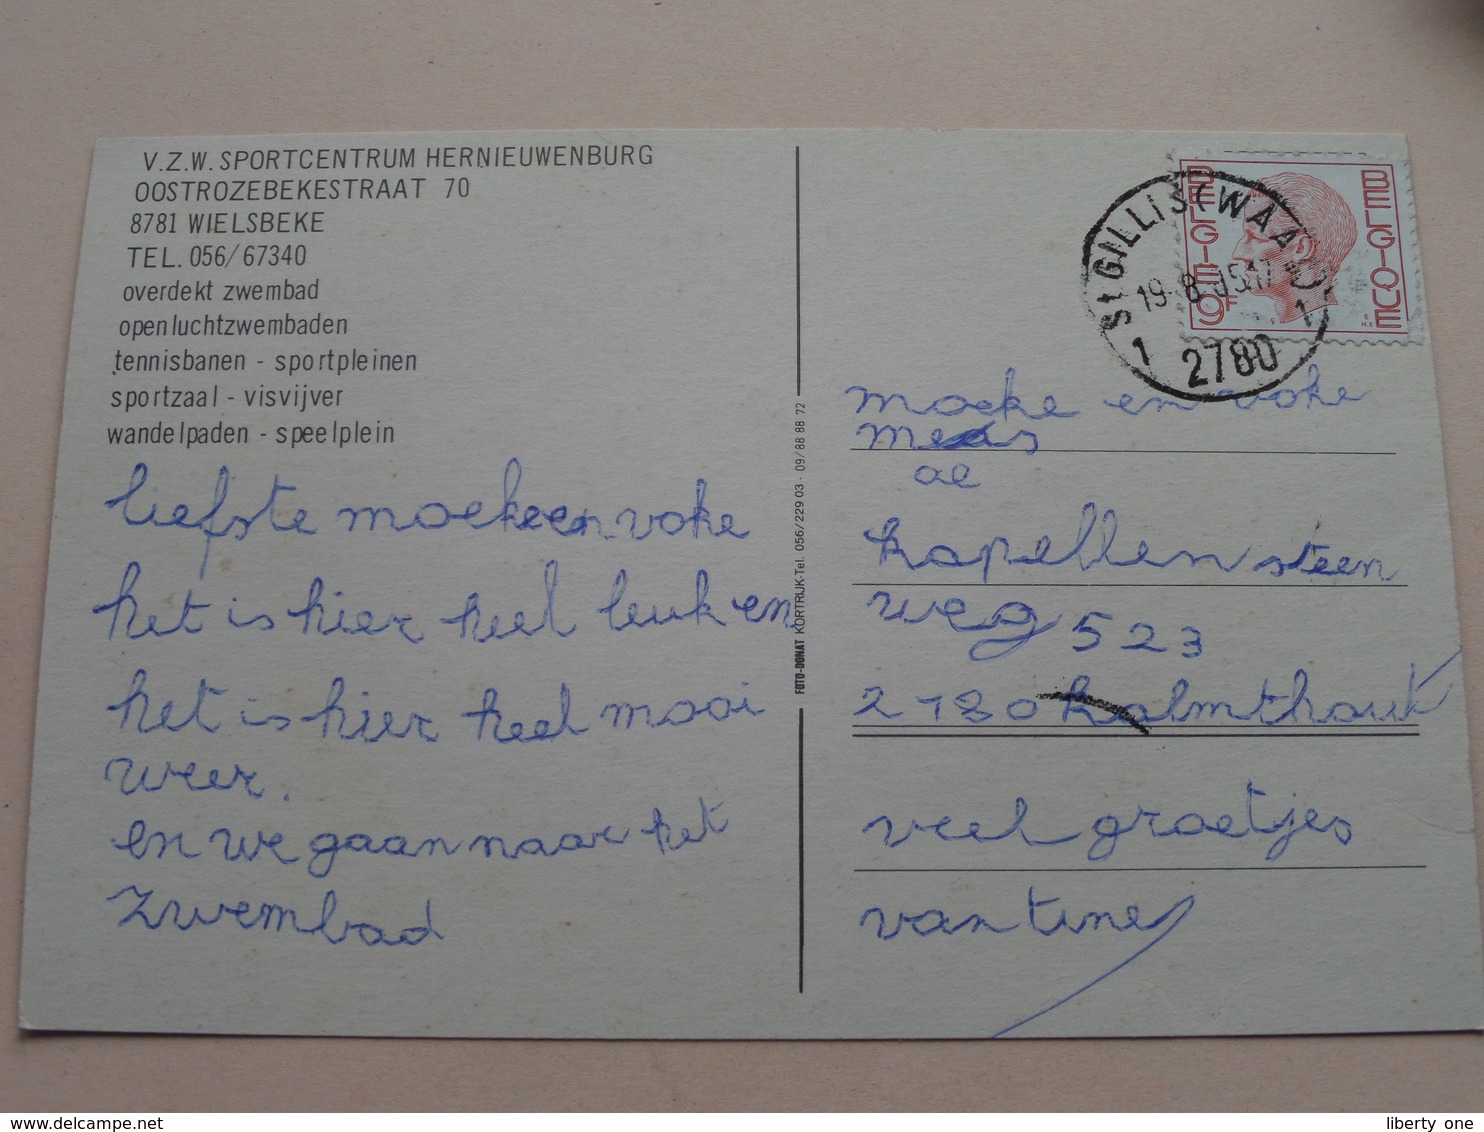 V.Z.W. SPORTCENTRUM HERNIEUWENBURG
OOSTROZEBEKESTRAAT 70
8781 WIELSBEKE
TEL. 056/67340
overdekt zwembad
openluchtzwembaden
tennisbanen - sportpleinen
sportzaal - visvijver
wandelpaden - speelplein
liefste moeke en voke
het is hier heel leuk en
het is hier heel mooi
weer.
en we gaan naar het
zwembad
FOTO-DONAT KORTRIJK-Tel. 056/229 03 - 09/88 88 72
BELGIE 9F BELGIQUE
St GILLIS (WAAS)
19-8 17
1 2780 1
moeke en voke
kapellensteen
weg 523
2180 kalmthout
veel groetjes
van tine
www.delcampe.net
liberty one